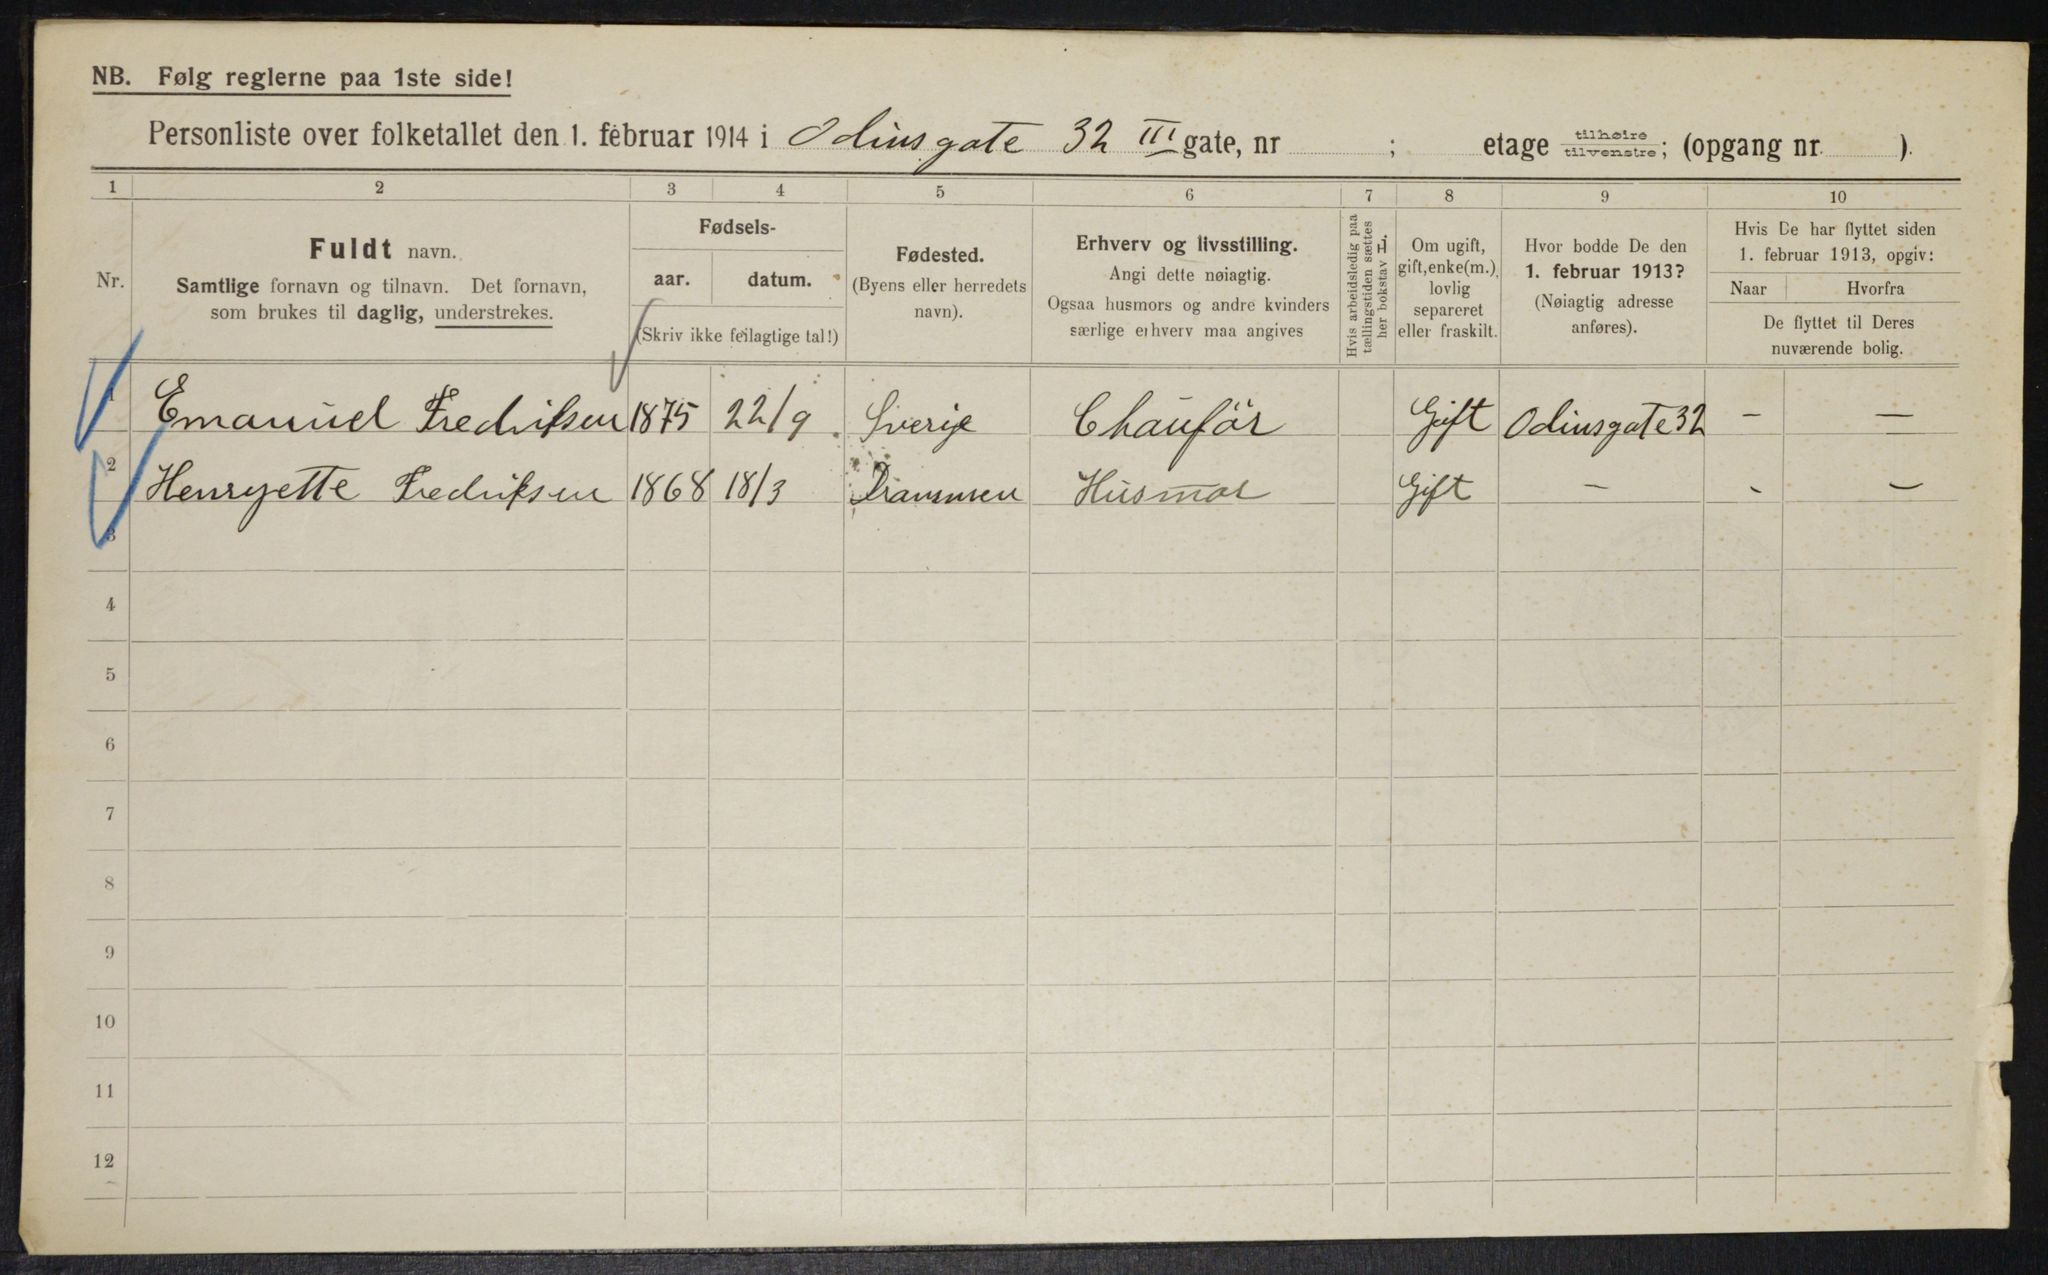 NB. Følg reglerne paa 1ste side!
Personliste over folketallet den 1. februar 1914 i Odinsgate 32 III gate, nr ; etage tilhøire tilvenstre; (opgang nr. ).
1 2 3 4 5 6 7 8 9 10
Nr.
Fuldt navn.
Samtlige fornavn og tilnavn. Det fornavn,
som brukes til daglig, understrekes.
Fødsels-
aar. datum.
(Skriv ikke feilagtige tal!)
Fødested.
(Byens eller herredets
navn).
Erhverv og livsstilling.
Angi dette nøiagtig.
Ogsaa husmors og andre kvinders
særlige erhverv maa angives
Hvis arbeidsledig paa
tællingstiden sættes
her bokstav L.
Om ugift,
gift, enke(m.),
lovlig
separeret
eller fraskilt.
Hvor bodde De den
1. februar 1913?
(Nøiagtig adresse
anføres).
Hvis De har flyttet siden
1. februar 1913, opgiv:
Naar Hvorfra
De flyttet til Deres
nuværende bolig.
1 Emanuel Fredriksen 1875 22/9 Sverige Chauför Gift Odinsgate 32 — —
2 Henryette Fredriksen 1868 18/3 Drammen Husmor Gift — - —
3
4
5
6
7
8
9
10
11
12